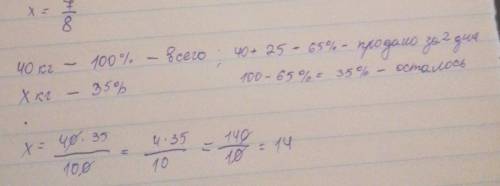 x = 7/8
40 кг — 100% — всего ; 40 + 25 — 65% — продано за 2 дня
x кг — 35%
100 - 65% = 35% — осталось
x = 40 · 35/100 = 4 · 35/10 = 140/10 = 14